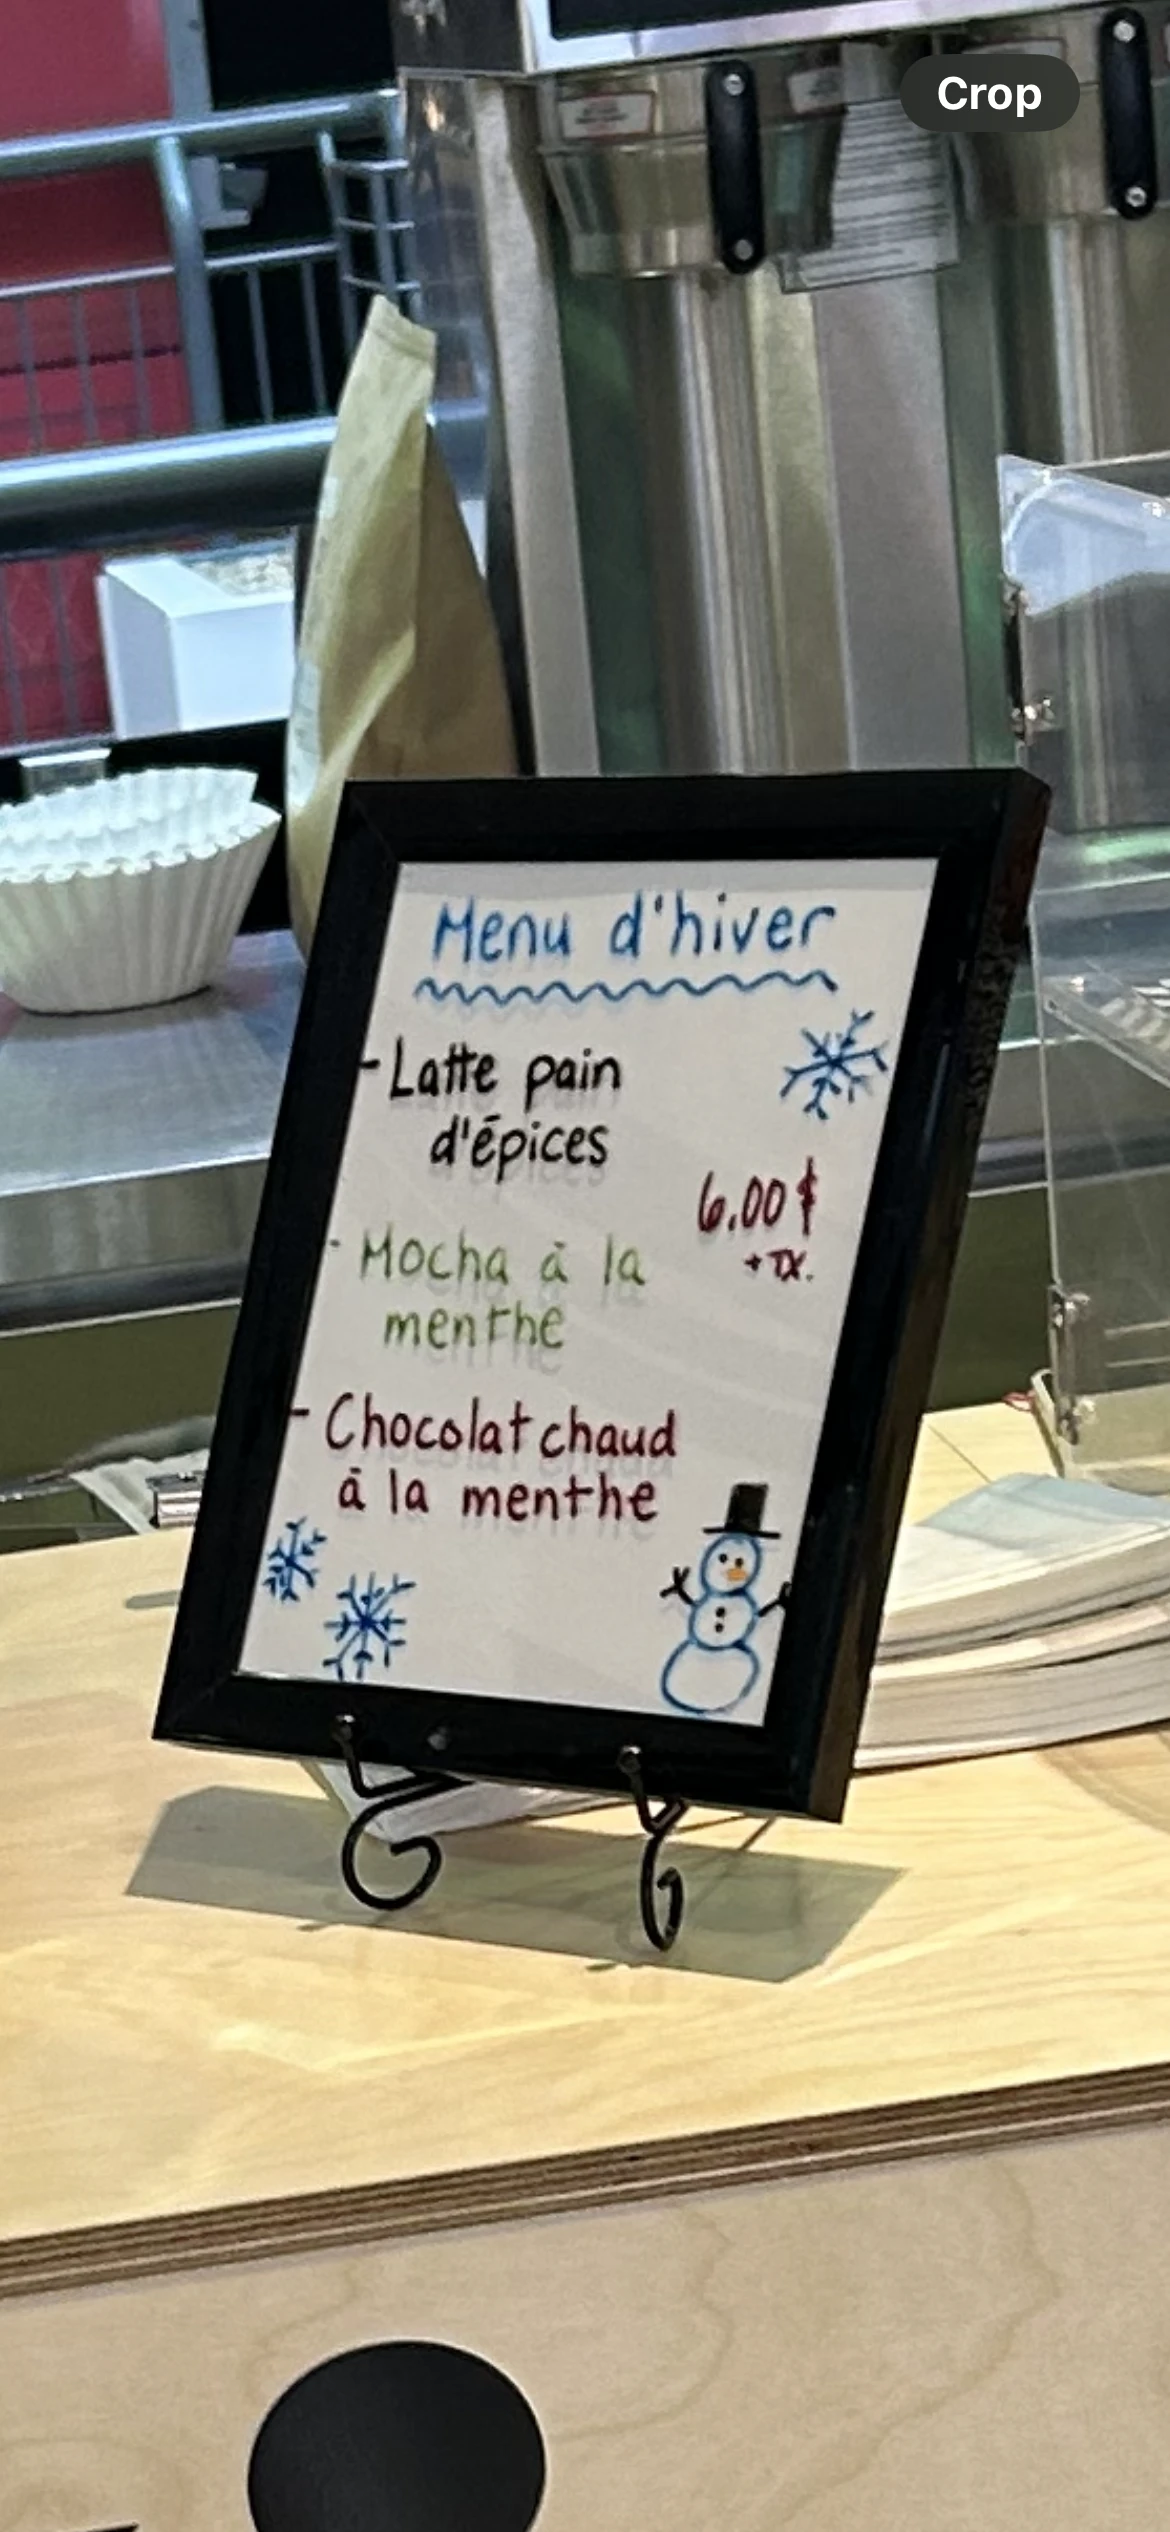 Crop
Menu d'hiver
- Latte pain
d'épices
6.00$
+ TX.
- Mocha à la
menthe
- Chocolat chaud
à la menthe